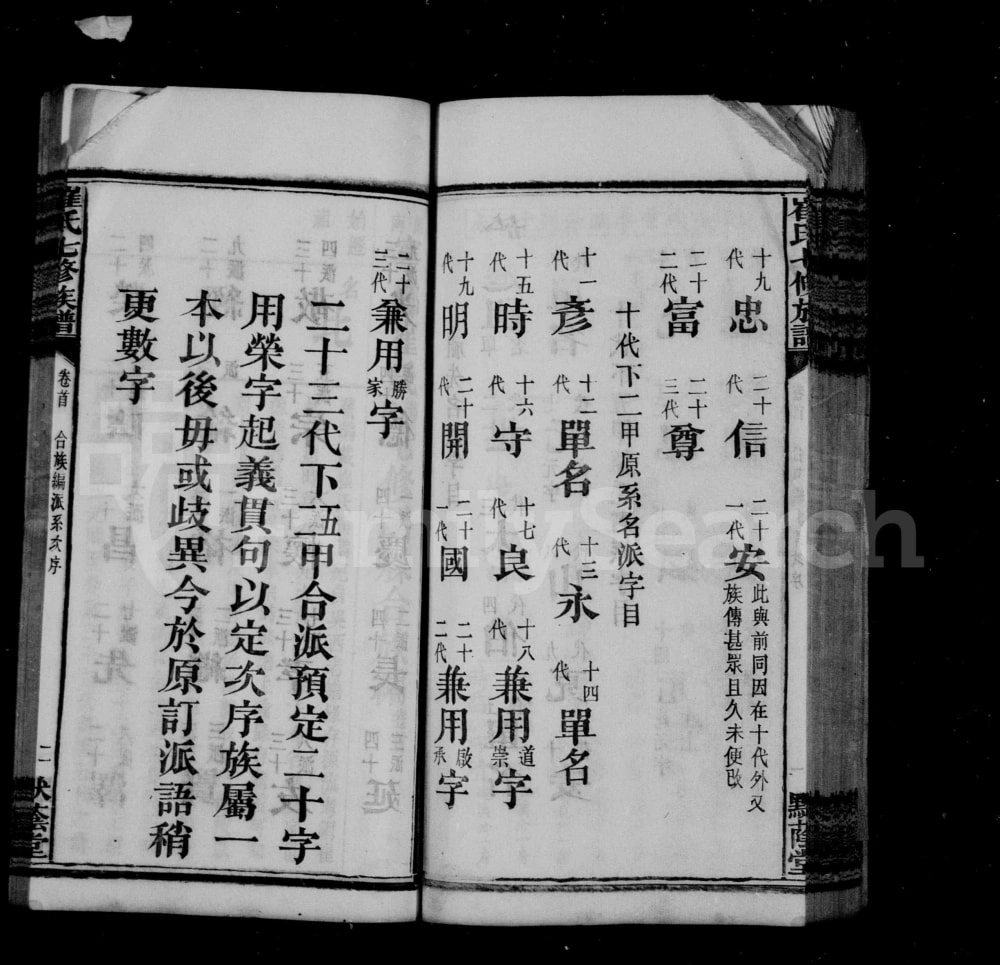 崔氏七修族譜
默蔭堂
十九代忠 二十代信 二十一代安 此與前同因在十代外又族傳甚眾且久未便改
二十二代富 二十三代尊
十代下二甲原系名派字目
十一代彥 十二代單名 十三代永 十四代單名
十五代時 十六代守 十七代良 十八代兼用道崇字
十九代明 二十代開 二十一代國 二十二代兼用啟承字
二十三代兼用勝家字
二十三代下二五甲合派預定二十字
用榮字起義貫句以定次序族屬一
本以後毋或歧異今於原訂派語稍
更數字
崔氏七修族譜 卷首 合族編派系次序 二 默蔭堂
FamilySearch